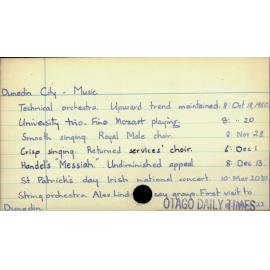 Dunedin City - Music
Technical orchestra. Upward trend maintained. 8: Oct 18, 1950
University trio. Fine Mozart playing. 8: .. 20
Smooth singing. Royal Male choir. 8: Nov 28
Crisp singing. Returned services' choir. 6: Dec 1
Handel's "Messiah." Undiminished appeal. 8: Dec 13
St Patrick's day. Irish national concert. 10: Mar 20
String orchestra. Alex Lind say group. First visit to
Dunedin 22
OTAGO DAILY TIMES